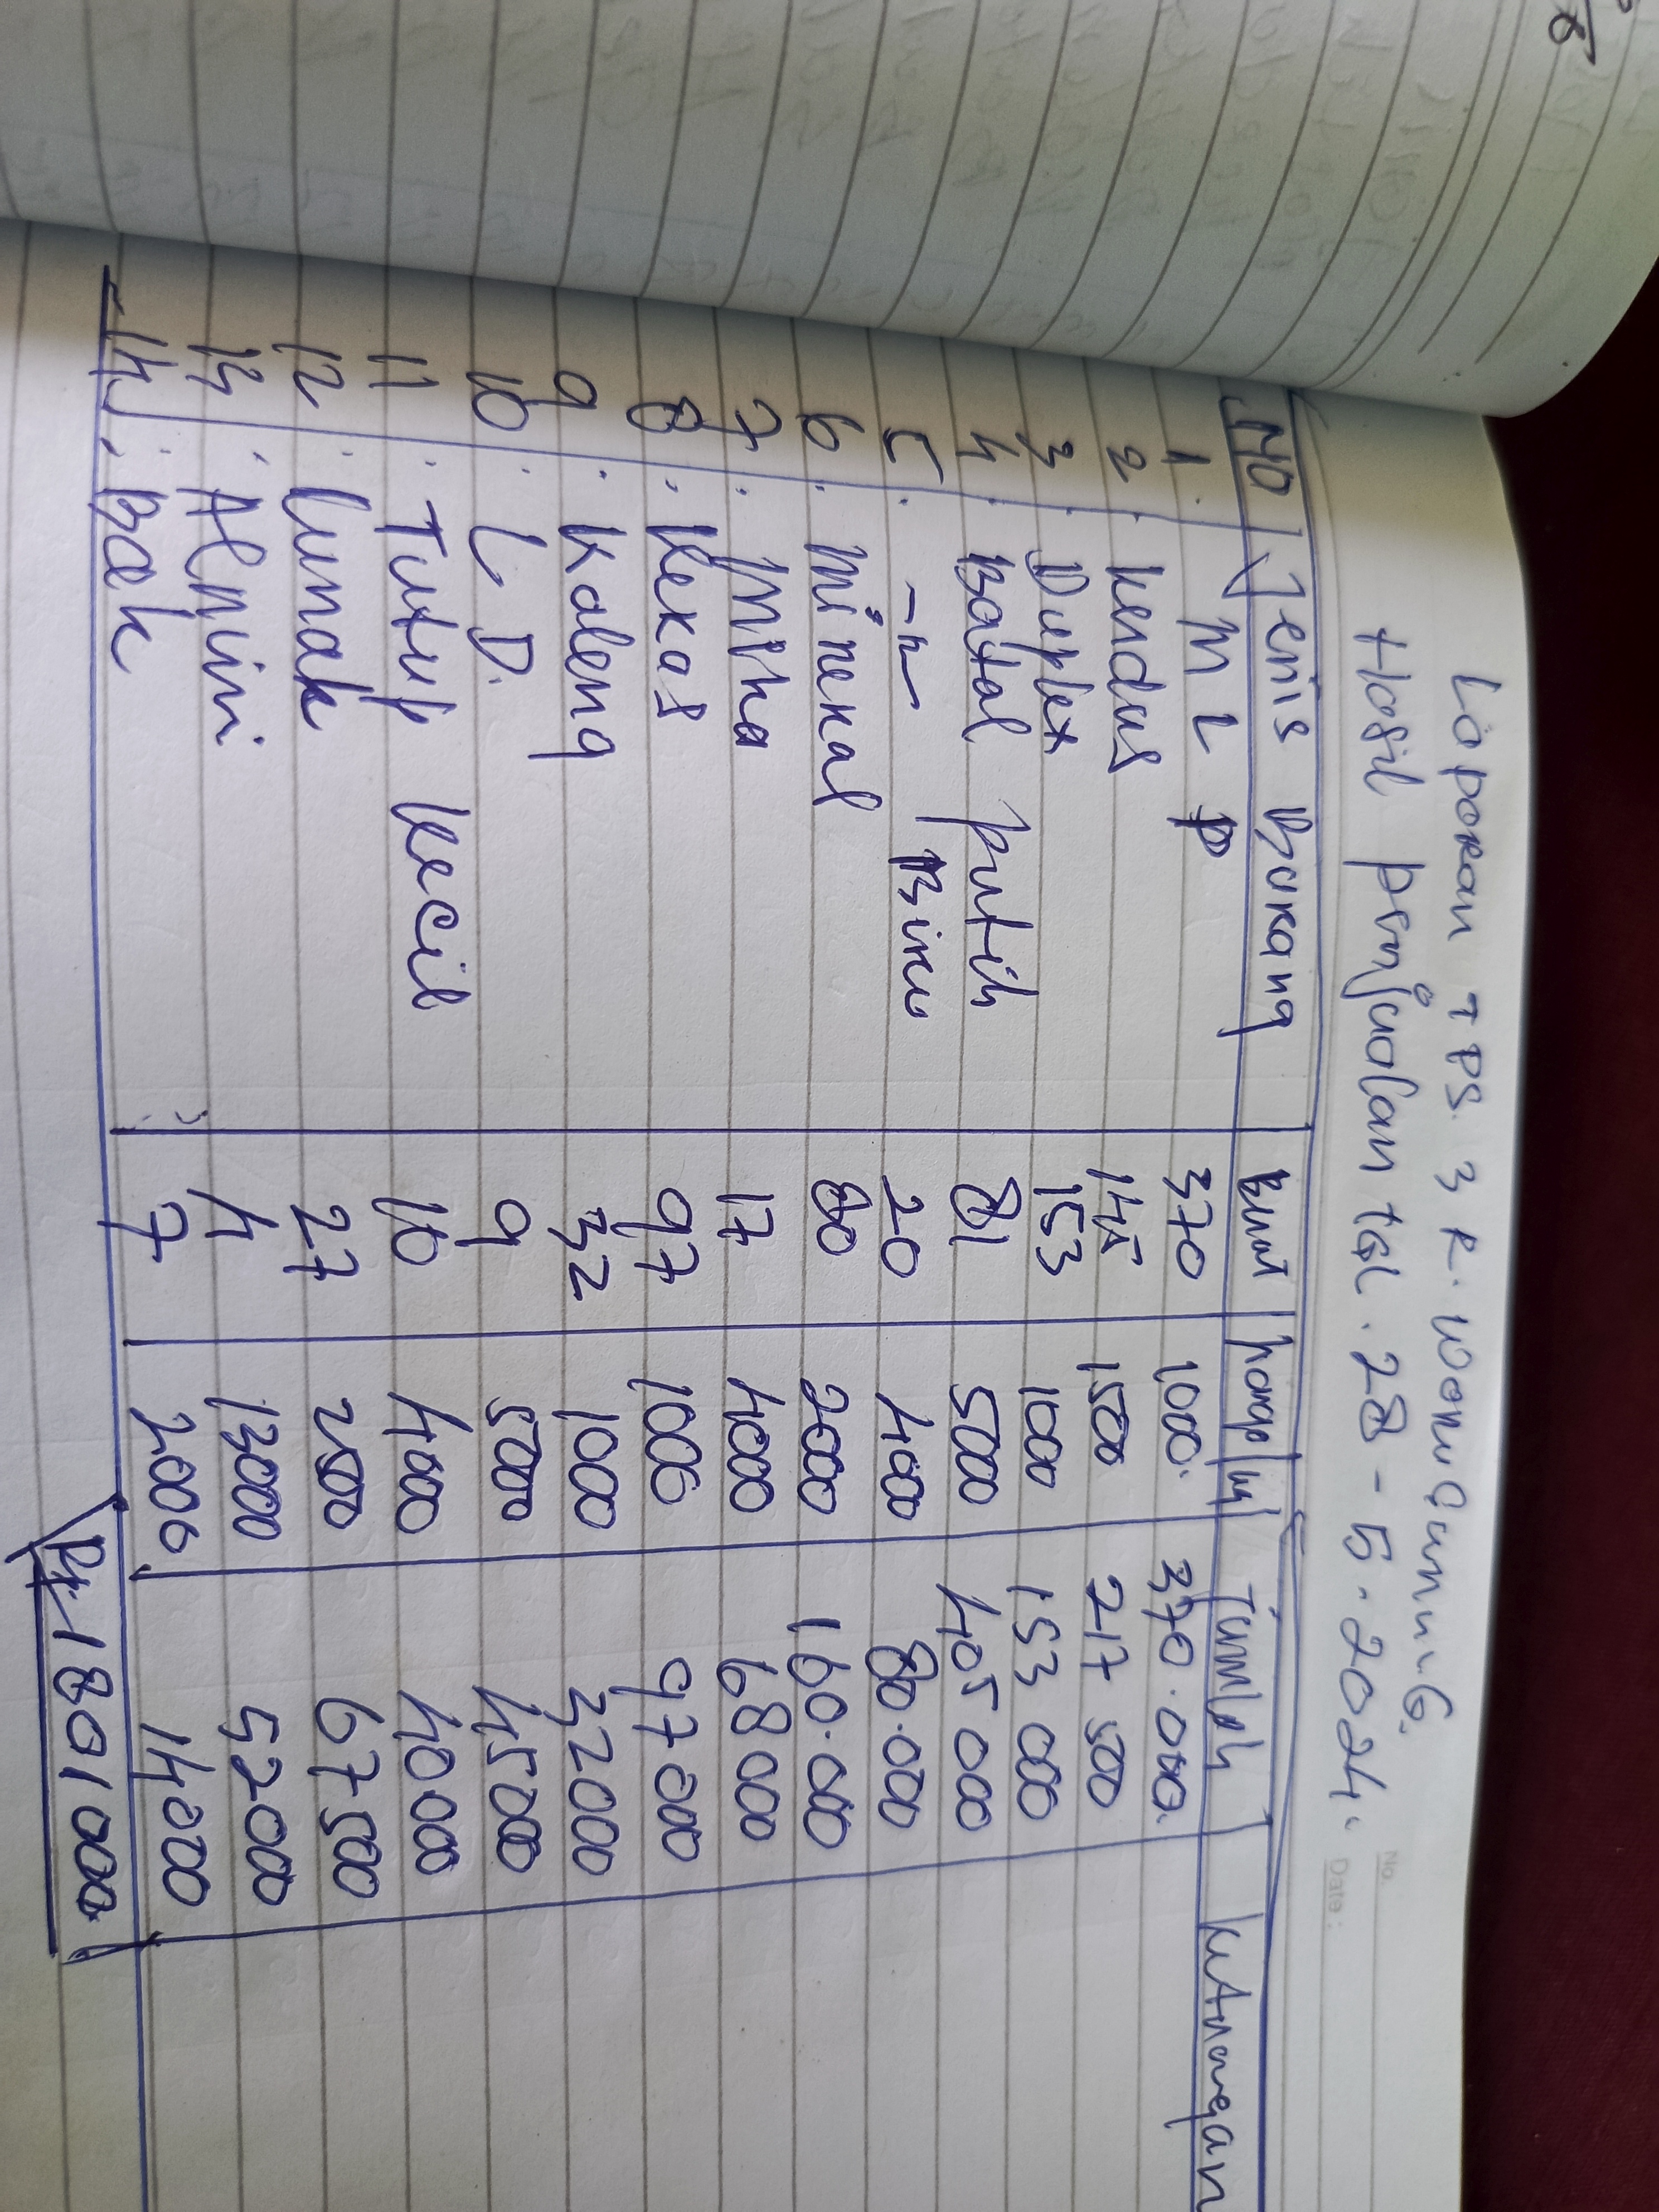 Laporan TPS 3 R. Wonigunung.
Hasil penjualan tgl. 28 - 5 - 2024.
No.
Date:
NO Jenis Barang Berat harga Jumlah Keterangan
1. M L P 370 1000. 370.000.
2. Kerdus 145 1500 217 500
3. Duplex 153 1000 153 000
4. Botol putih 81 5000 405 000
5. -"- Biru 20 4000 80.000
6. Mineral 80 2000 160.000
7. Mika 17 4000 68 000
8. Keras 97 1000 97 000
9. Kaleng 32 1000 32 000
10. L D. 9 5000 45 000
11. Tutup kecil 10 4000 40 000
12. Lunak 27 2500 67 500
13. Almini 4 13000 52 000
14. Bak 7 2000 14 000
Rp. 1 801 000